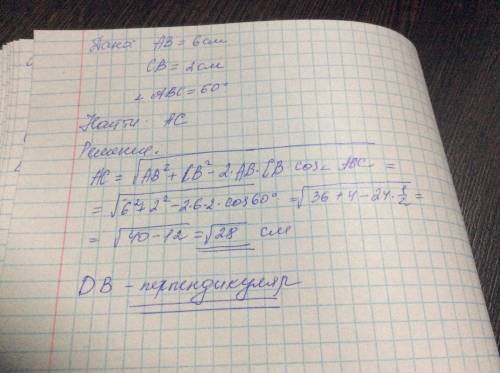 Дано: AB = 6 см
CB = 2 см
∠ABC = 60°
Найти: AC
Решение.
AC = √AB² + CB² - 2·AB·CB·cos∠ABC =
= √6² + 2² - 2·6·2·cos60° = √36 + 4 - 24·1/2 =
= √40 - 12 = √28 см
DB - перпендикуляр